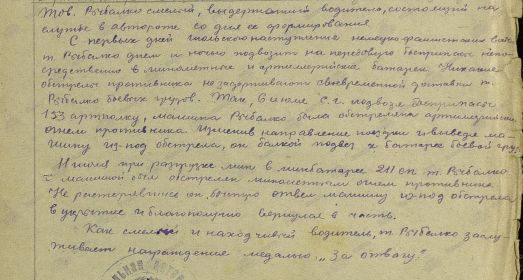 Тов. Рыбалко смелый, выдержанный водитель, состоящий на
службе в автороте со дня ее формирования
С первых дней июльского наступление немецко фашистских войск
т. Рыбалко днем и ночью подвозит на передовую боеприпасы непо-
средственно в минометные и артиллерийские батареи. Никакие
обстрелы противника не задерживают своевременной доставки т.
Рыбалко боевых грузов. Так, 6 июля с.г. подвозя боеприпасы
153 артполку, машина Рыбалко была обстреляна артиллерийским
огнем противника. Изменив направление поездки и выведя ма-
шину из-под обстрела, он балкой подвез к батарее боевой груз
июля при разгрузке мин в минбатарее 211 сп т. Рыбалко
с машиной был обстрелян минометным огнем противника
Не растерявшись он, быстро отвел машину из-под обстрела
в укрытие и благополучно вернулся в часть.
Как смелый и находчивый водитель, т. Рыбалко заслу-
живает награждение медалью „За отвагу."